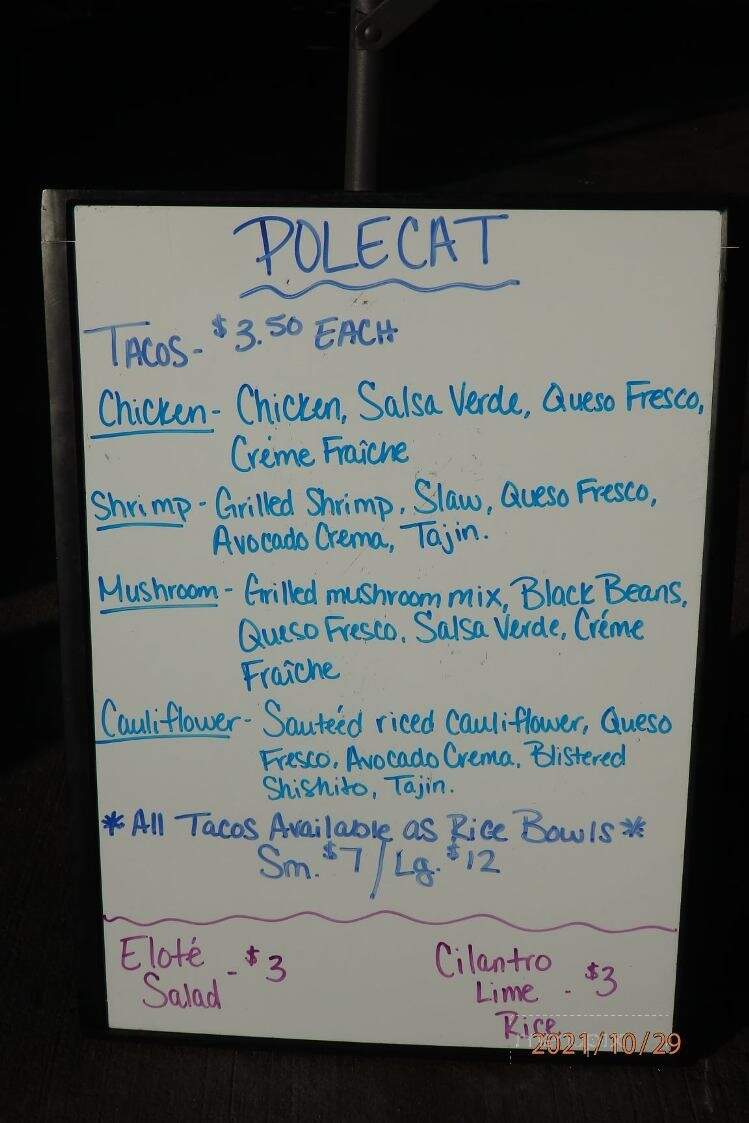 POLECAT
TACOS - $3.50 EACH
Chicken - Chicken, Salsa Verde, Queso Fresco,
Créme Fraîche
Shrimp - Grilled Shrimp, Slaw, Queso Fresco,
Avocado Crema, Tajin.
Mushroom - Grilled mushroom mix, Black Beans,
Queso Fresco, Salsa Verde, Créme
Fraîche
Cauliflower - Sauteéd riced cauliflower, Queso
Fresco, Avocado Crema, Blistered
Shishito, Tajin.
*All Tacos Available as Rice Bowls*
Sm. $7 / Lg. $12
Eloté
Salad - $3
Cilantro
Lime - $3
Rice
2021/10/29